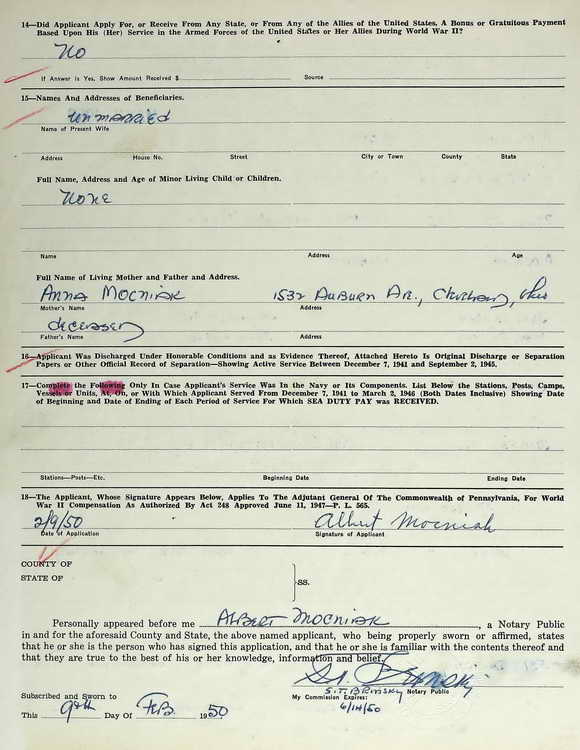 14—Did Applicant Apply For, or Receive From Any State, or From Any of the Allies of the United States, A Bonus or Gratuitous Payment
Based Upon His (Her) Service in the Armed Forces of the United States or Her Allies During World War II?
No
If Answer is Yes, Show Amount Received $ Source
15—Names And Addresses of Beneficiaries.
unmarried
Name of Present Wife
Address House No. Street City or Town County State
Full Name, Address and Age of Minor Living Child or Children.
None
Name Address Age
Full Name of Living Mother and Father and Address.
Anna Mocniak 1532 Auburn Av., Cleveland, Ohio
Mother's Name Address
deceased
Father's Name Address
16—Applicant Was Discharged Under Honorable Conditions and as Evidence Thereof, Attached Hereto Is Original Discharge or Separation
Papers or Other Official Record of Separation—Showing Active Service Between December 7, 1941 and September 2, 1945.
17—Complete the Following Only In Case Applicant's Service Was In the Navy or Its Components. List Below the Stations, Posts, Camps,
Vessels or Units, At, On, or With Which Applicant Served From December 7, 1941 to March 2, 1946 (Both Dates Inclusive) Showing Date
of Beginning and Date of Ending of Each Period of Service For Which SEA DUTY PAY was RECEIVED.
Stations—Posts—Etc. Beginning Date Ending Date
18—The Applicant, Whose Signature Appears Below, Applies To The Adjutant General Of The Commonwealth of Pennsylvania, For World
War II Compensation As Authorized By Act 248 Approved June 11, 1947—P. L. 565.
2/9/50 Albert Mocniak
Date of Application Signature of Applicant
COUNTY OF
STATE OF
ss.
Personally appeared before me Albert Mocniak, a Notary Public
in and for the aforesaid County and State, the above named applicant, who being properly sworn or affirmed, states
that he or she is the person who has signed this application, and that he or she is familiar with the contents thereof and
that they are true to the best of his or her knowledge, information and belief.
S.T. BRINSKY Notary Public
Subscribed and Sworn to My Commission Expires:
This 9th Day Of Feb. 1950 6/14/50